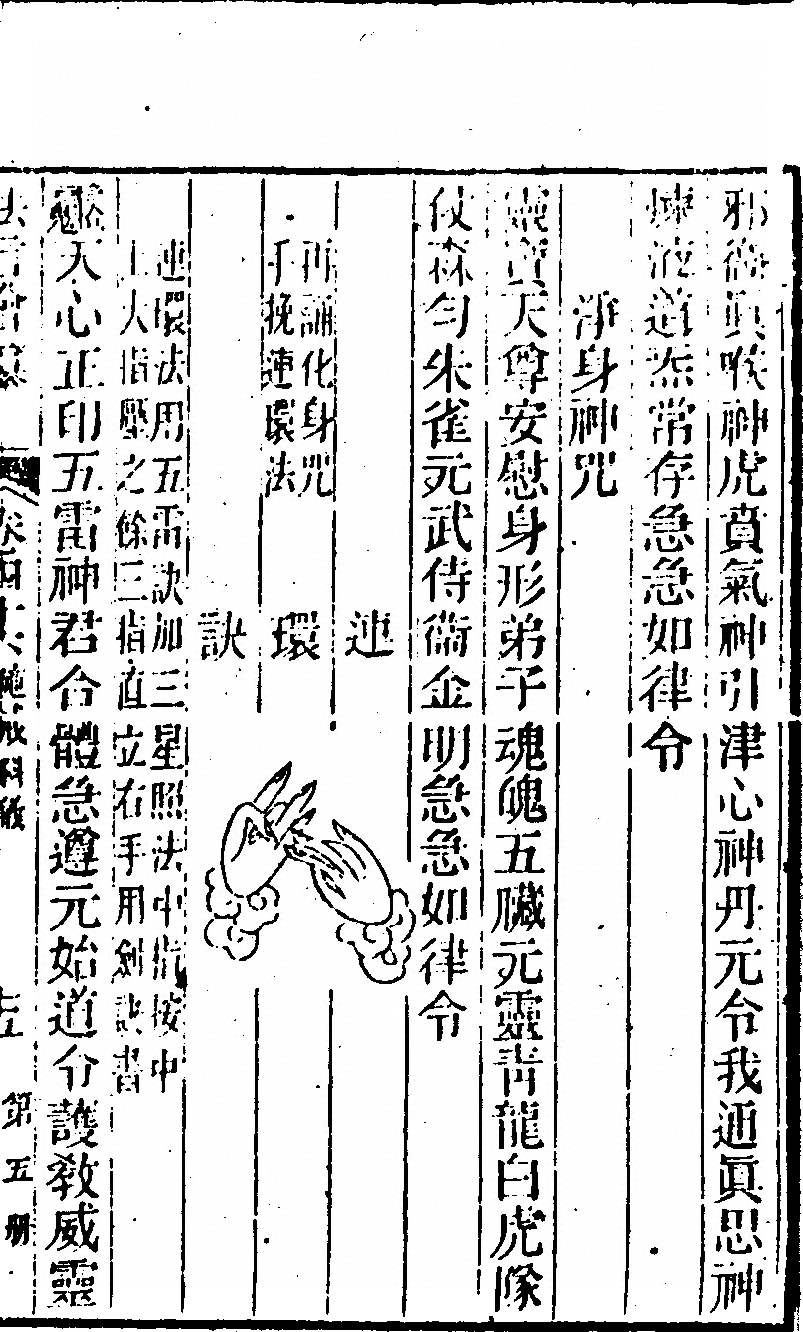 邪衞眞喉神虎賁氣神引津心神丹元令我通眞思神
煉液道炁常存急急如律令
淨身神咒
靈寶天尊安慰身形弟子魂魄五臟元靈青龍白虎隊
仗森匀朱雀元武侍衞金明急急如律令
再誦化身咒
手挽連環法
連
環
訣
連環法用五雷訣加三星照法中指按中
上大指壓之餘三指直立右手用劍訣書
天心正印五雷神君合體急遵元始道分護敎威靈
卷四十六
科儀
十五
第五册